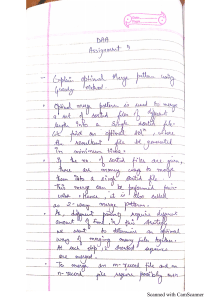 DAA
Assignment 4
- Explain optimal Merge pattern using
Greedy Method
• Optimal merge pattern is used to merge
a set of sorted files of different
length into a single sorted file.
We find an optimal solⁿ, where
the resultant file be generated
in minimum time.
• If the no. of sorted files are given,
there are many ways to merge
them into a single sorted file.
This merge can be performed pair
wise. Hence, it is also called
as 2-way merge pattern.
• As different pairing require different
amount of time in this strategy
we want to determine an optimal
way of merging many files together.
At each step, 2 shortest sequences
are merged.
• To merge an m-record file and an
n-record file require possibly m+n
Scanned with CamScanner